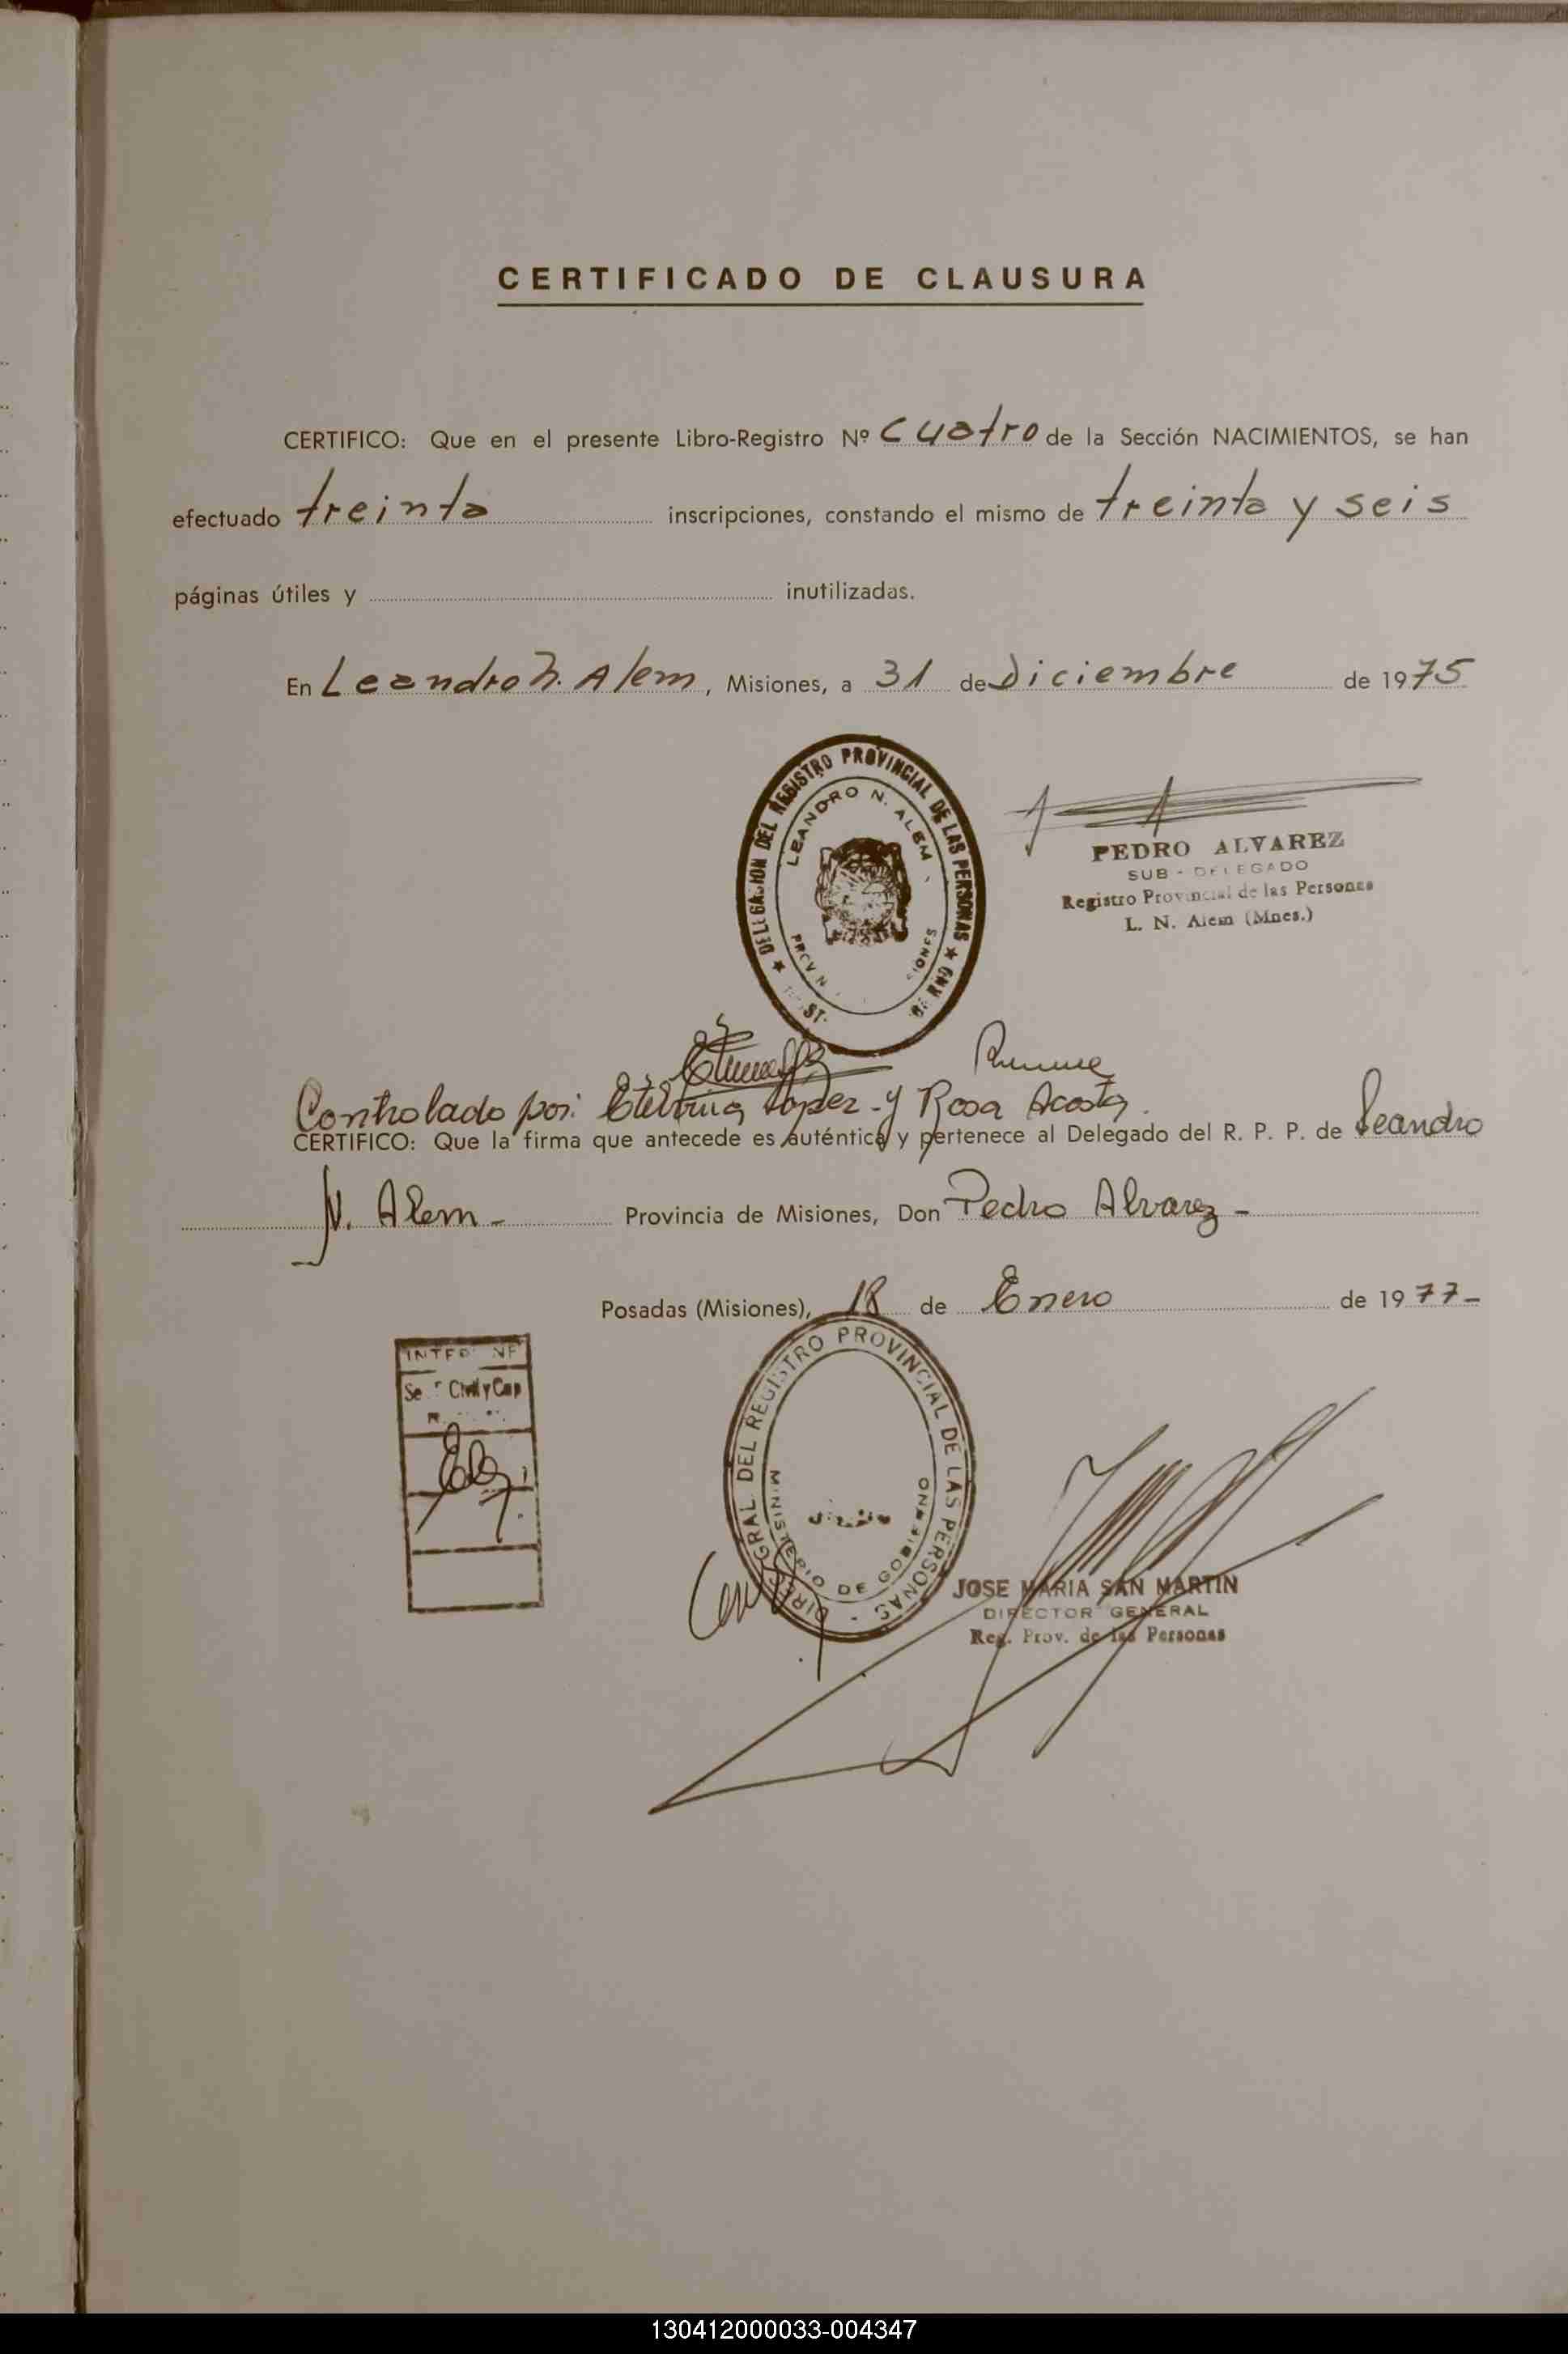 CERTIFICADO DE CLAUSURA
CERTIFICO: Que en el presente Libro-Registro Nº Cuatro de la Sección NACIMIENTOS, se han
efectuado treinta inscripciones, constando el mismo de treinta y seis
páginas útiles y inutilizadas.
En Leandro N. Alem, Misiones, a 31 de Diciembre de 1975
DELEGACION DEL REGISTRO PROVINCIAL DE LAS PERSONAS
LEANDRO N. ALEM
PEDRO ALVAREZ
SUB-DELEGADO
Registro Provincial de las Personas
L. N. Alem (Mnes.)
Controlado por: Etelvina Lopez y Rosa Acosta.
CERTIFICO: Que la firma que antecede es auténtica y pertenece al Delegado del R. P. P. de Leandro
N. Alem - Provincia de Misiones, Don Pedro Alvarez -
Posadas (Misiones), 18 de Enero de 1977-
Civil y Cap
GRAL. DEL REGISTRO PROVINCIAL DE LAS PERSONAS -
MINISTERIO DE GOBIERNO
JOSE MARIA SAN MARTIN
DIRECTOR GENERAL
Reg. Prov. de las Personas
130412000033-004347